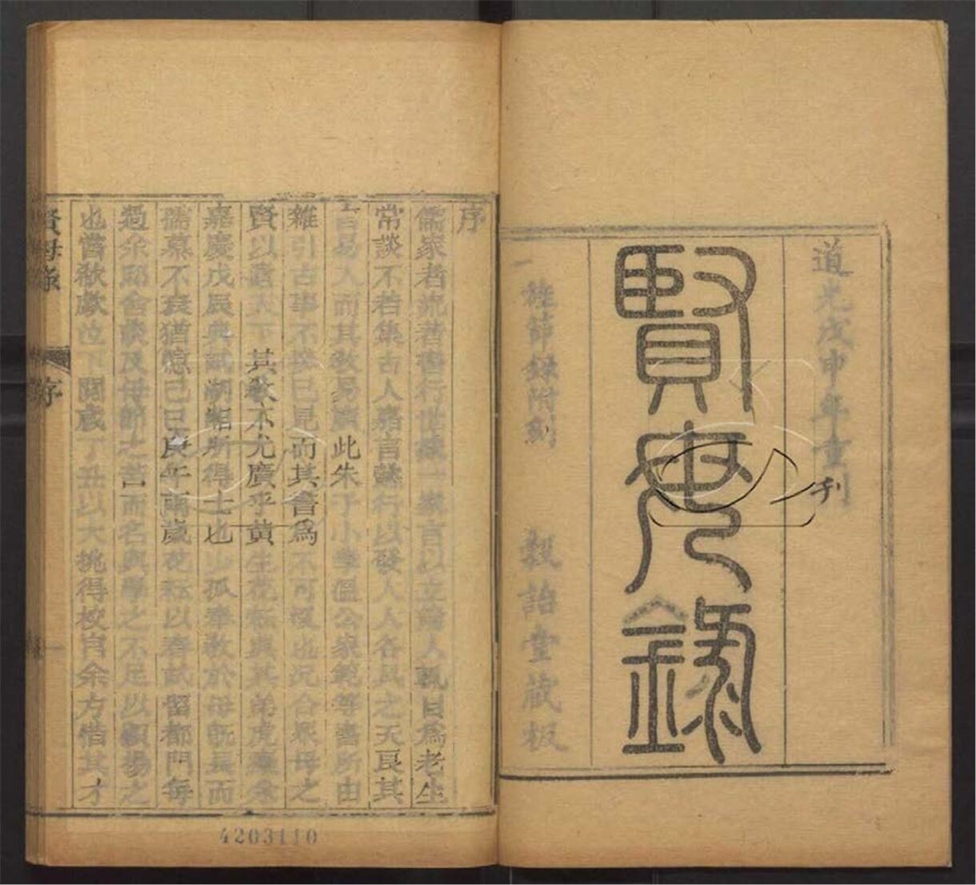 道光戊申年重刊
賢母錄
旌節錄附刻 穀詒堂藏板
序
儒家者流著書行世讖一家言以立論人輒目為老生
常談不若集古人嘉言懿行以發人人各具之天良其
言易入而其教易廣此朱子小學溫公家範等書所由
雜引古事不參己見而其書為不可沒也況合衆母之
賢以譱天下其教不尤廣乎黃生花耘與其弟虎癡余
嘉慶戊辰典試湖湘所得士也少孤奉教於母既長而
孺慕不衰猶憶己巳庚午兩歲花耘以春試留都門每
過余邸舍談及母節之苦而名與學之不足以顯揚之
也嘗欷歔泣下閱歲丁丑以大挑得校官余方惜其才
賢母錄 序 一
4203110